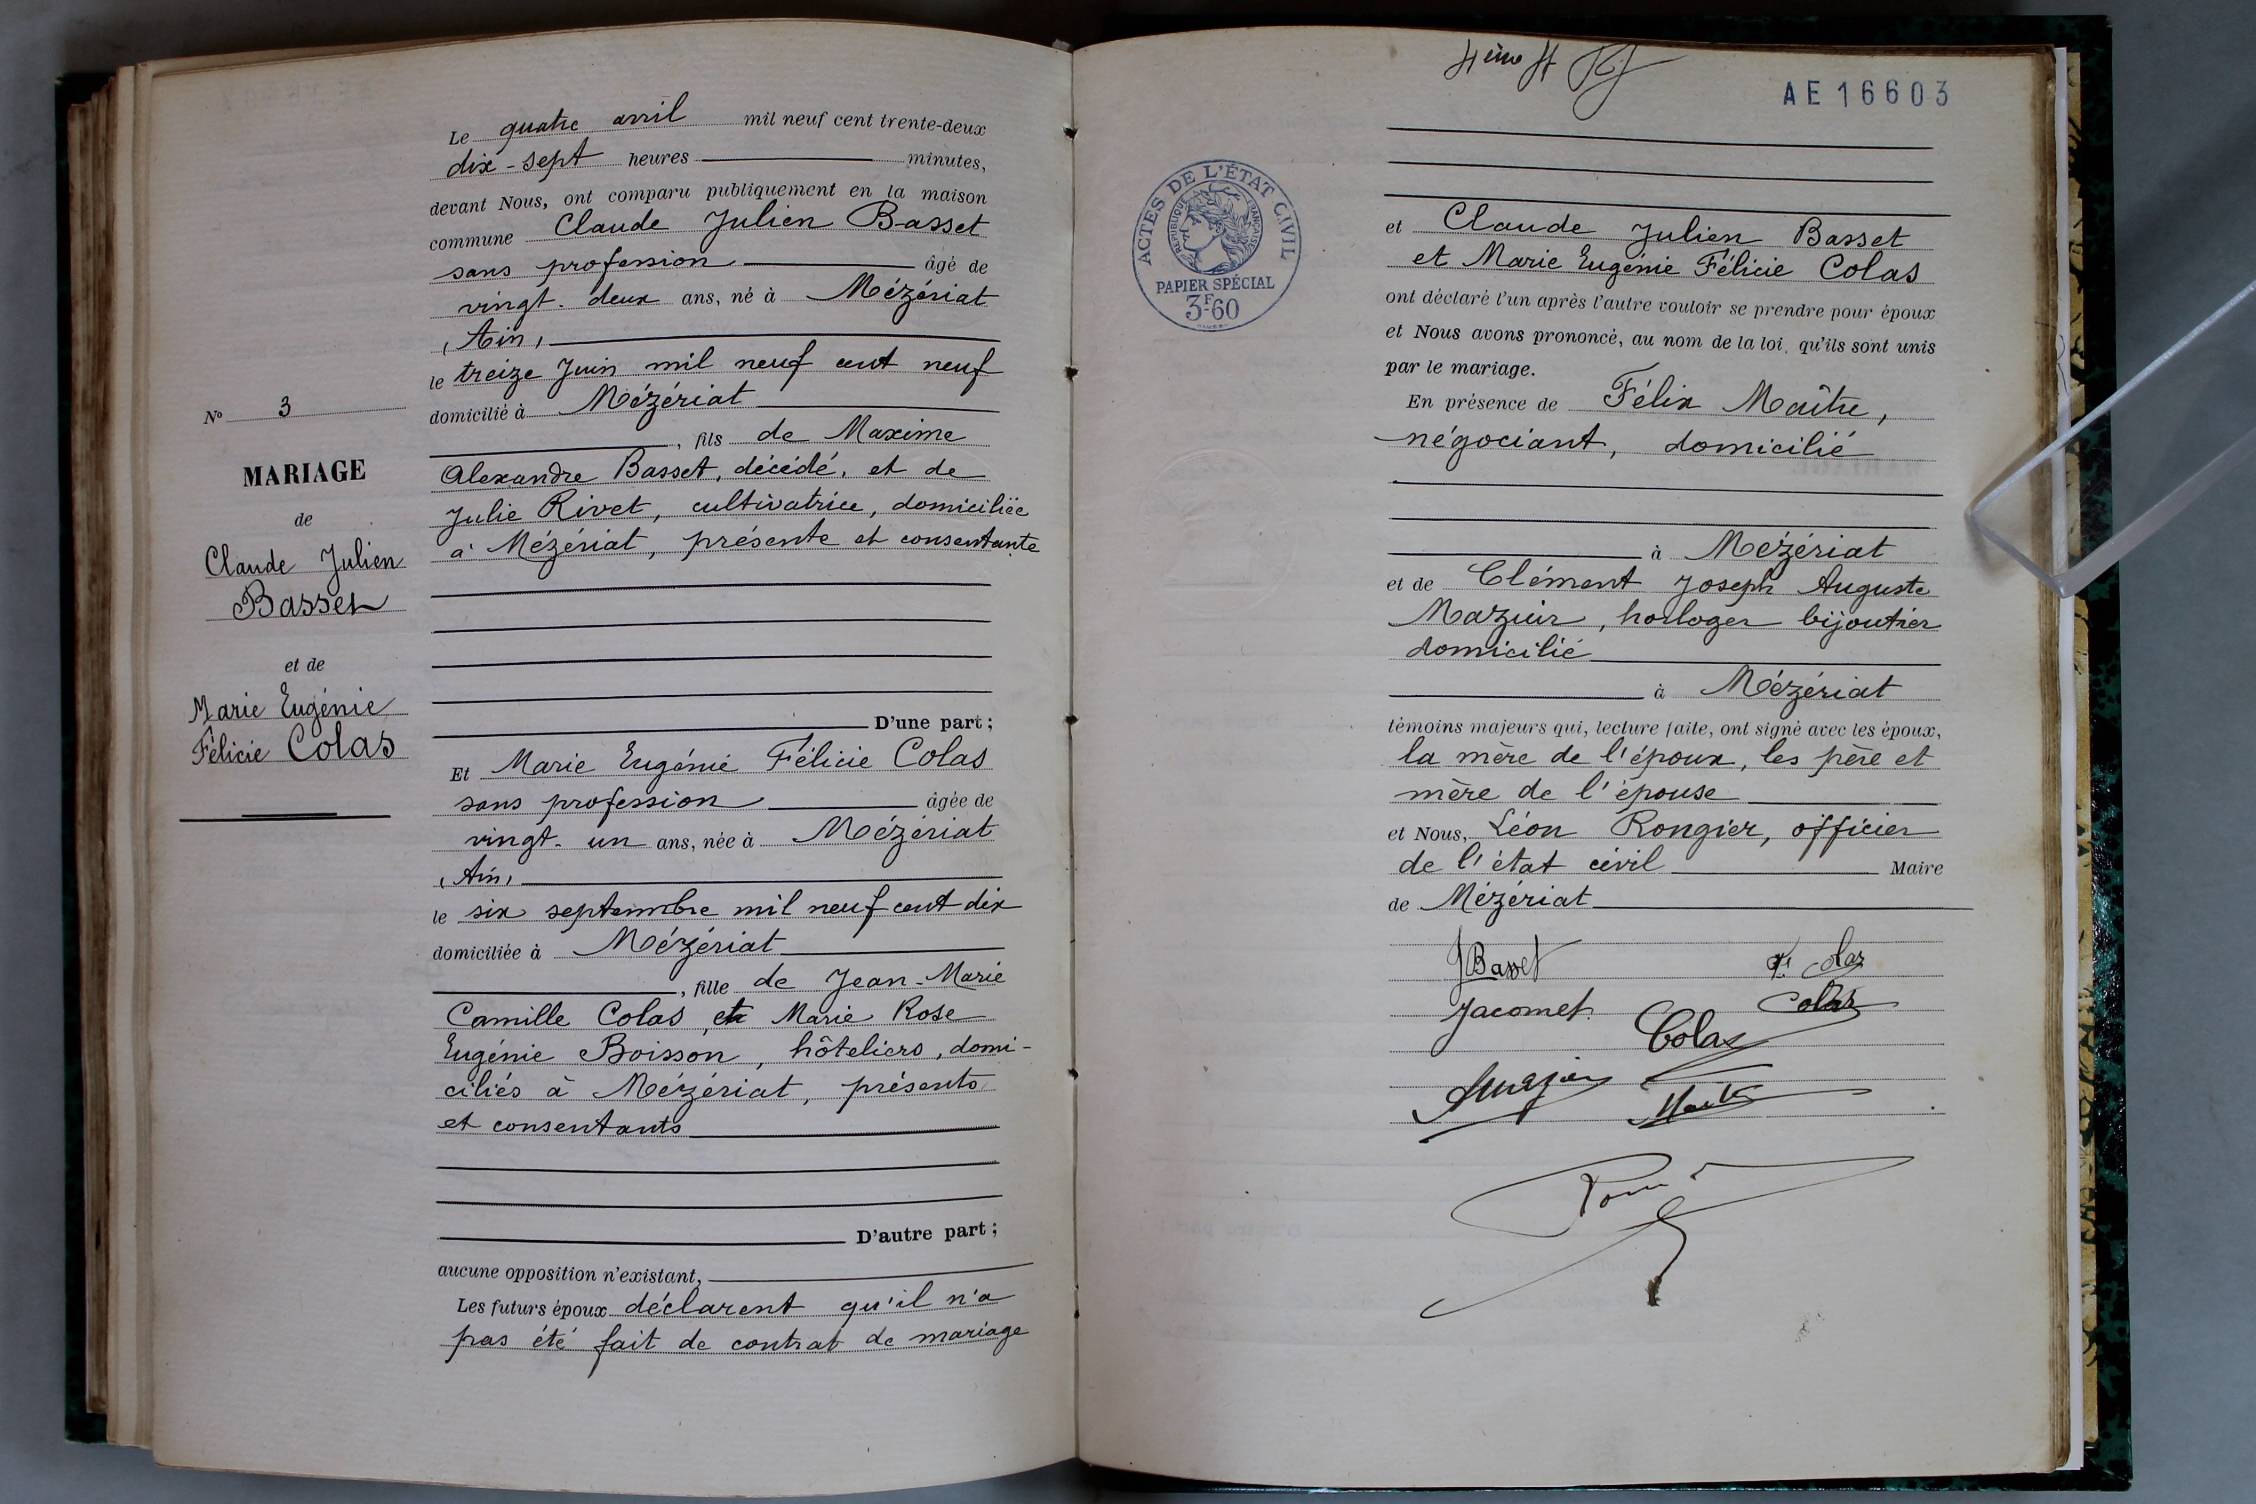 Le quatre avril mil neuf cent trente-deux
dix-sept heures minutes,
devant Nous, ont comparu publiquement en la maison
commune Claude Julien Basset
sans profession âgé de
vingt-deux ans, né à Mézériat
(Ain)
le treize Juin mil neuf cent neuf
domicilié à Mézériat
, fils de Maxime
Alexandre Basset, décédé, et de
Julie Rivet, cultivatrice, domiciliée
à Mézériat, présente et consentante
D'une part ;
Nº 3
MARIAGE
de
Claude Julien
Basset
et de
Marie Eugénie
Félicie Colas
Et Marie Eugénie Félicie Colas
sans profession âgée de
vingt-un ans, née à Mézériat
(Ain)
le six septembre mil neuf cent dix
domiciliée à Mézériat
, fille de Jean-Marie
Camille Colas et Marie Rose
Eugénie Boisson, hôteliers, domi-
ciliés à Mézériat, présents
et consentants
D'autre part ;
aucune opposition n'existant,
Les futurs époux déclarent qu'il n'a
pas été fait de contrat de mariage
AE 16603
ACTES DE L'ÉTAT CIVIL
RÉPUBLIQUE FRANÇAISE
PAPIER SPÉCIAL
3F-60
et Claude Julien Basset
et Marie Eugénie Félicie Colas
ont déclaré l'un après l'autre vouloir se prendre pour époux
et Nous avons prononcé, au nom de la loi, qu'ils sont unis
par le mariage.
En présence de Félix Maître,
négociant, domicilié
à Mézériat
et de Clément Joseph Auguste
Mazuir, horloger bijoutier
domicilié
à Mézériat
témoins majeurs qui, lecture faite, ont signé avec les époux,
la mère de l'époux, les père et
mère de l'épouse
et Nous, Léon Rongier, officier
de l'état civil Maire
de Mézériat
JBasset F. Colas
Jacomet Colas
Colas